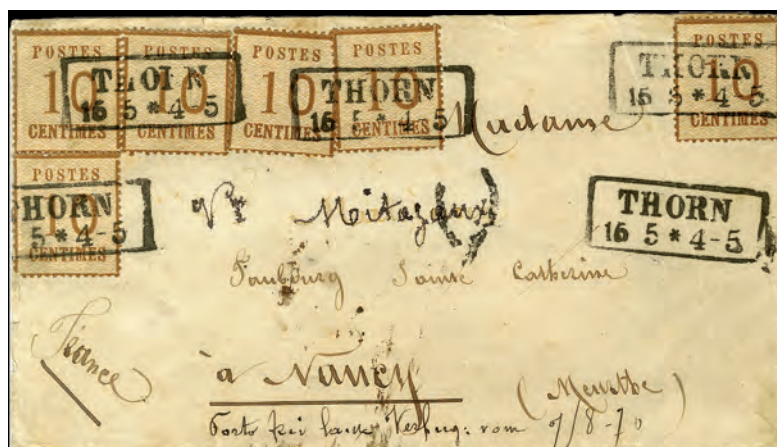 POSTES
10
CENTIMES
POSTES
10
CENTIMES
POSTES
10
CENTIMES
POSTES
10
CENTIMES
POSTES
10
CENTIMES
THORN
16 5 * 4-5
THORN
16 5 * 4-5
THORN
16 5 * 4-5
Madame
POSTES
10
CENTIMES
HORN
5 * 4-5
THORN
16 5 * 4-5
Vve Mitazaux
Faubourg Sainte Catherine
France
à Nancy
(Meurthe)
Porto frei laut Verfüg: vom 7/8-70